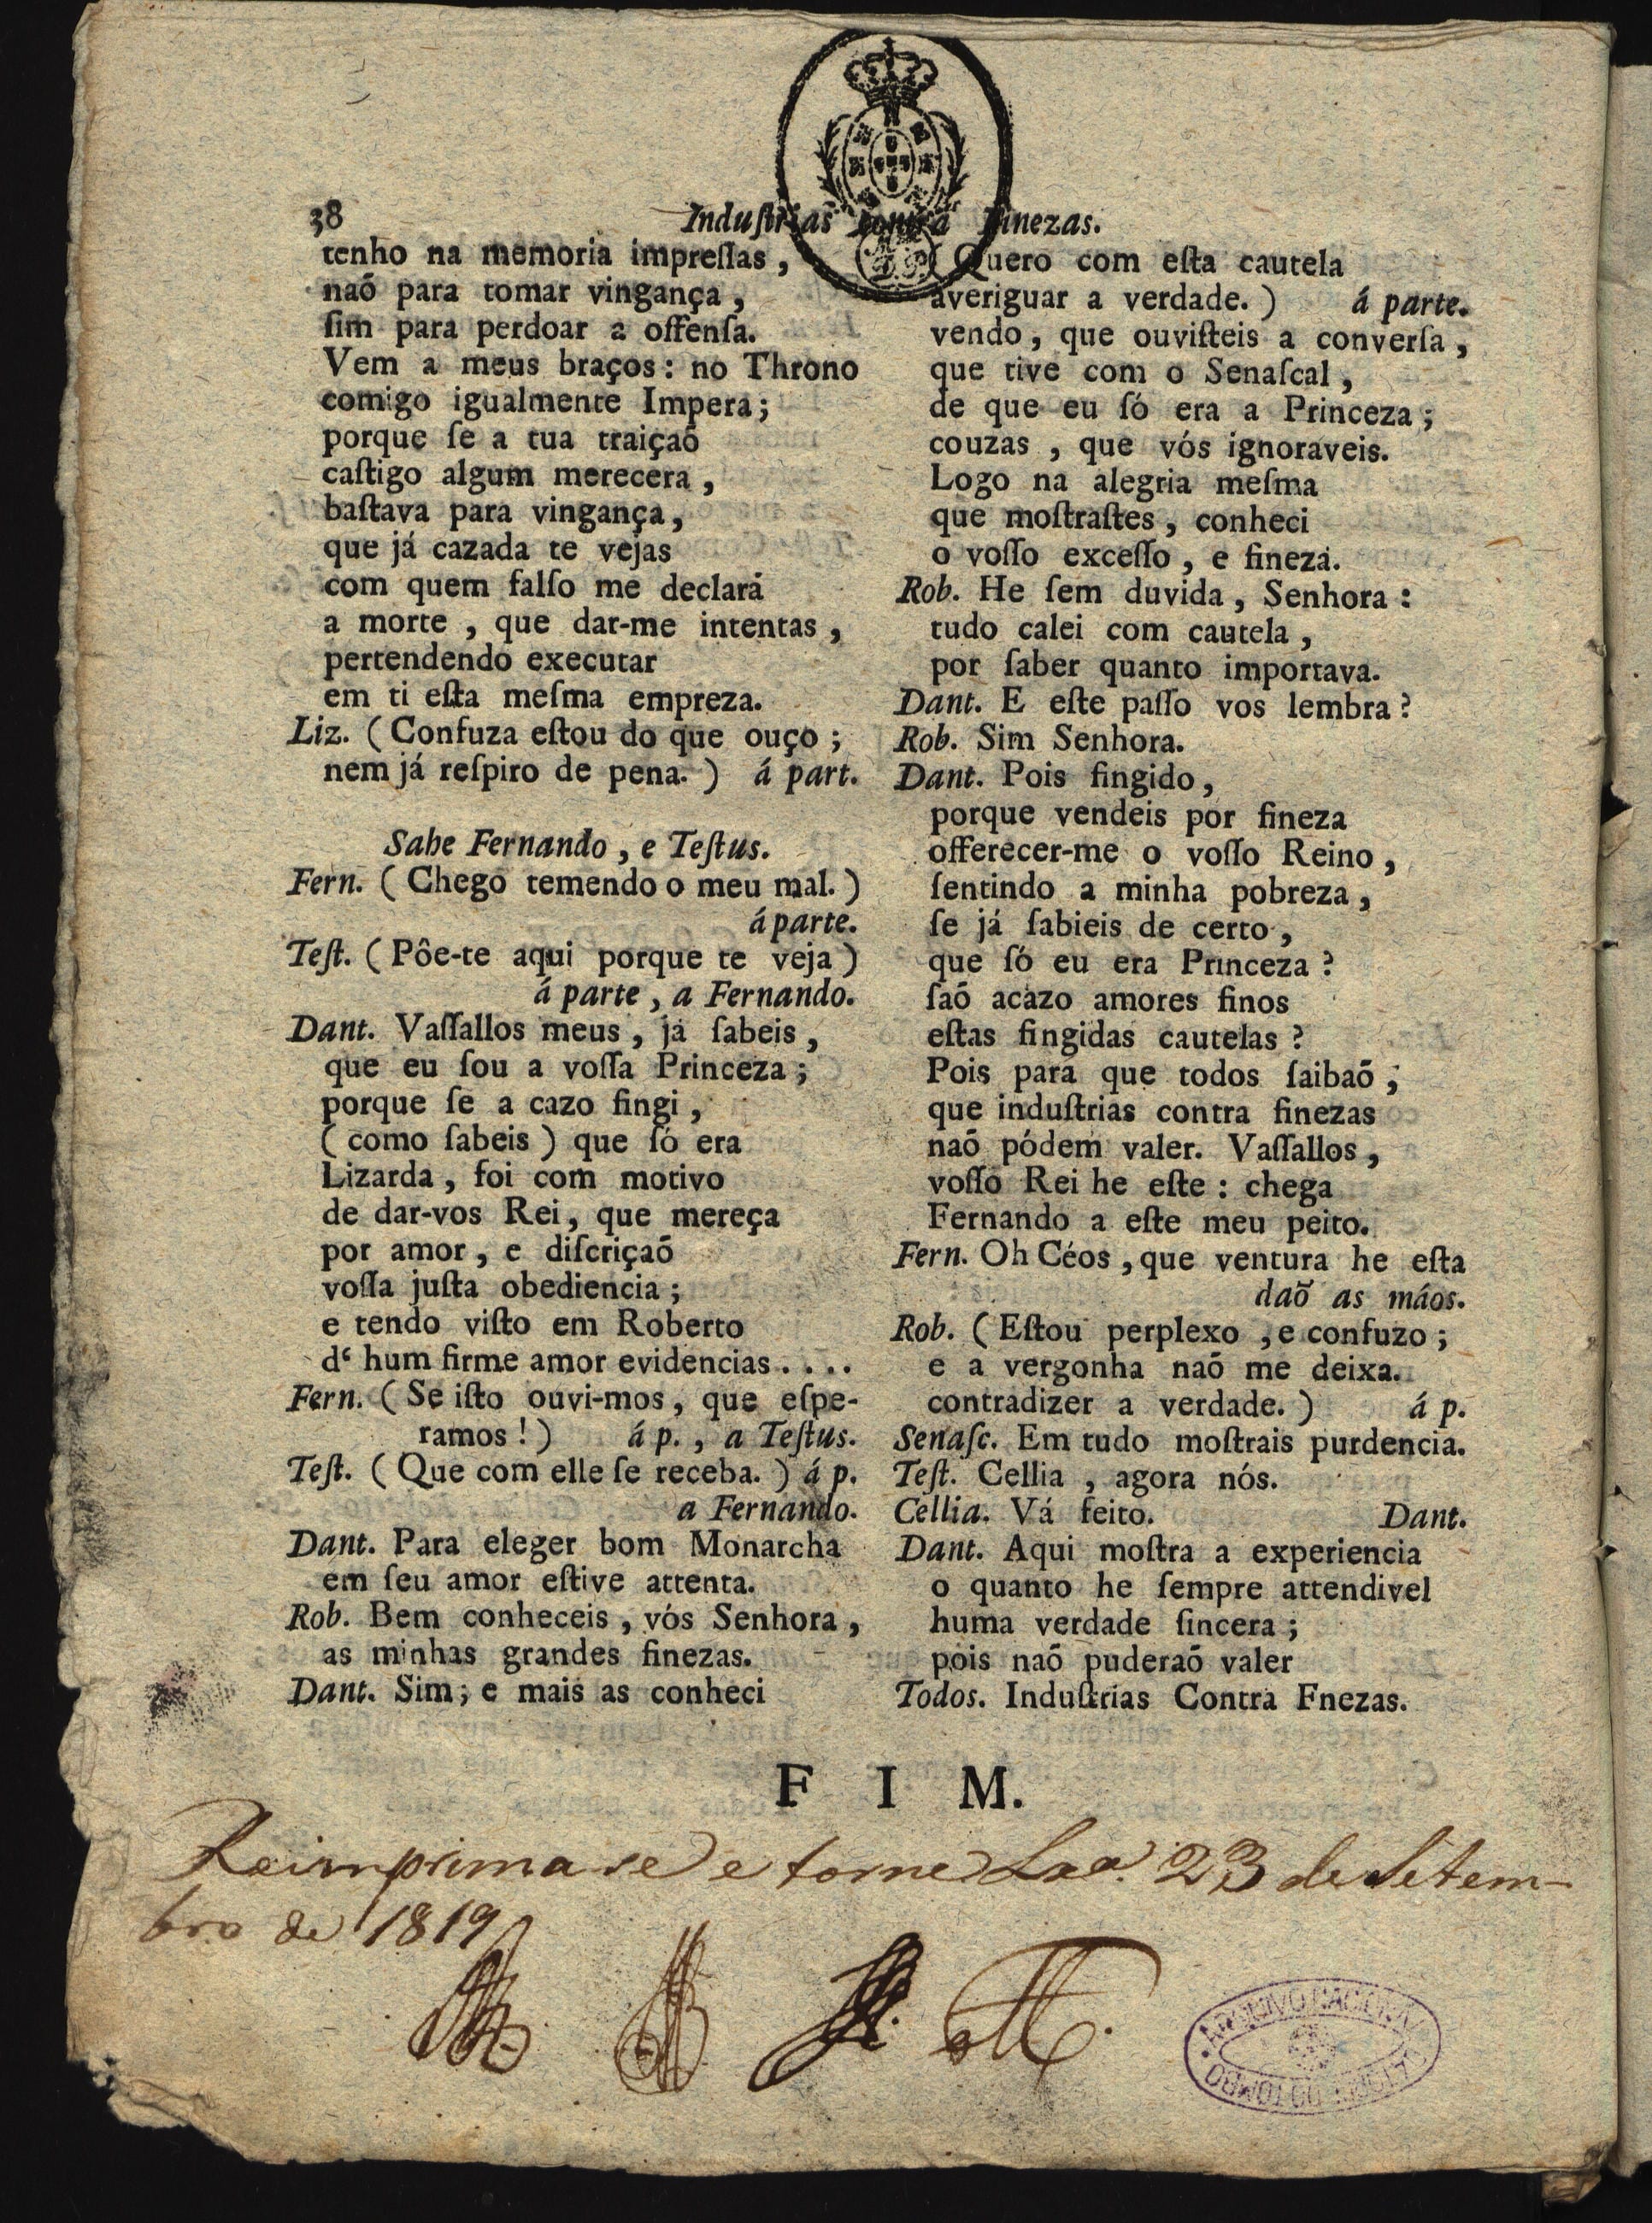 38
Induſtrias contra Finezas.
tenho na memoria impreſſas ,
naõ para tomar vingança ,
ſim para perdoar a offenſa.
Vem a meus braços : no Throno
comigo igualmente Impera ;
porque ſe a tua traiçaõ
caſtigo algum merecera ,
baſtava para vingança ,
que já cazada te vejas
com quem falſo me declará
a morte , que dar-me intentas ,
pertendendo executar
em ti eſta meſma empreza.
Liz. ( Confuza eſtou do que ouço ;
nem já reſpiro de pena. ) á part.
Sahe Fernando , e Teſtus.
Fern. ( Chego temendo o meu mal. )
á parte.
Teſt. ( Pôe-te aqui porque te veja )
á parte , a Fernando.
Dant. Vaſſallos meus , já ſabeis ,
que eu ſou a voſſa Princeza ;
porque ſe a cazo fingi ,
( como ſabeis ) que ſó era
Lizarda , foi com motivo
de dar-vos Rei , que mereça
por amor , e diſcriçaõ
voſſa juſta obediencia ;
e tendo viſto em Roberto
d‘ hum firme amor evidencias . . . .
Fern. ( Se iſto ouvi-mos , que eſpe-
ramos ! ) á p. , a Teſtus.
Teſt. ( Que com elle ſe receba. ) á p.
a Fernando.
Dant. Para eleger bom Monarcha
em ſeu amor eſtive attenta.
Rob. Bem conheceis , vós Senhora ,
as minhas grandes finezas.
Dant. Sim ; e mais as conheci
( Quero com eſta cautela
averiguar a verdade. ) á parte.
vendo , que ouviſteis a converſa ,
que tive com o Senaſcal ,
de que eu ſó era a Princeza ;
couzas , que vós ignoraveis.
Logo na alegria meſma
que moſtraſtes , conheci
o voſſo exceſſo , e fineza.
Rob. He ſem duvida , Senhora :
tudo calei com cautela ,
por ſaber quanto importava.
Dant. E eſte paſſo vos lembra ?
Rob. Sim Senhora.
Dant. Pois fingido ,
porque vendeis por fineza
offerecer-me o voſſo Reino ,
ſentindo a minha pobreza ,
ſe já ſabieis de certo ,
que ſó eu era Princeza ?
ſaõ acazo amores finos
eſtas fingidas cautelas ?
Pois para que todos ſaibaõ ,
que induſtrias contra finezas
naõ pódem valer. Vaſſallos ,
voſſo Rei he eſte : chega
Fernando a eſte meu peito.
Fern. Oh Céos , que ventura he eſta
daõ as máos.
Rob. ( Eſtou perplexo , e confuzo ;
e a vergonha naõ me deixa.
contradizer a verdade. ) á p.
Senaſc. Em tudo moſtrais purdencia.
Teſt. Cellia , agora nós.
Cellia. Vá feito. Dant.
Dant. Aqui moſtra a experiencia
o quanto he ſempre attendivel
huma verdade ſincera ;
pois naõ puderaõ valer
Todos. Induſtrias Contra Fnezas.
F I M.
Reimprima se e torne Lxa. 23 de Setem-
bro de 1819
ARQUIVO NACIONAL
TORRE DO TOMBO